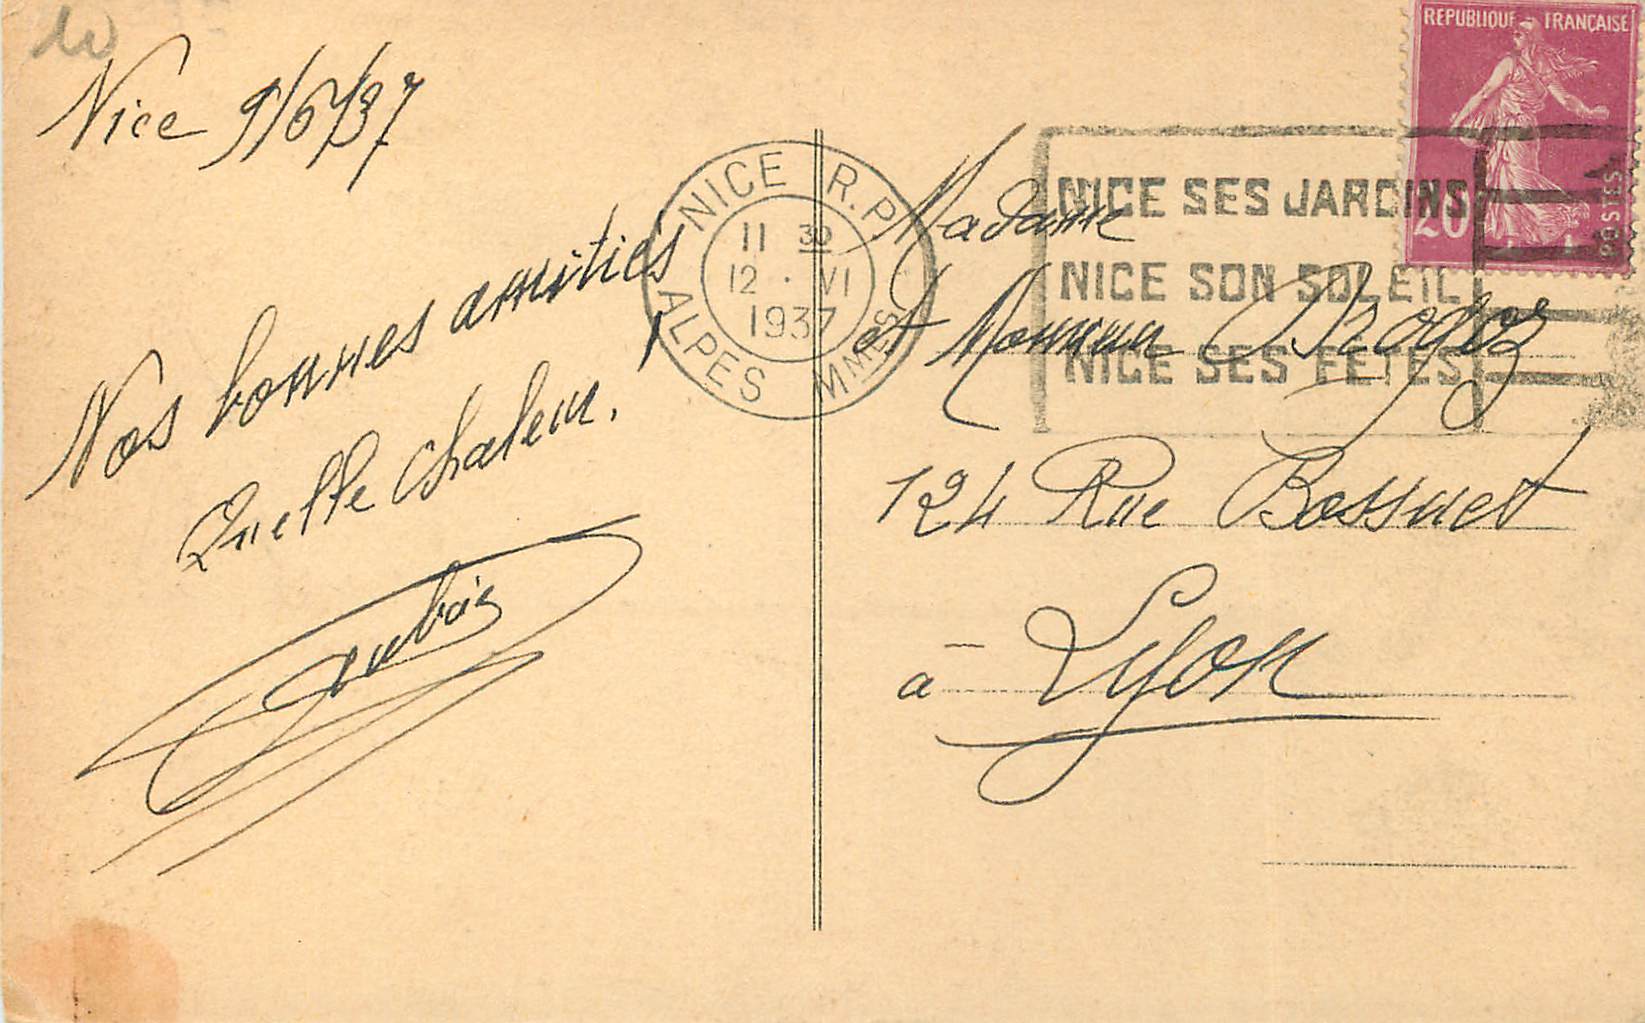 10
Nice 9/6/37
Nos bonnes amitiés
Quelle chaleur !
Dubois
NICE R.P.
11 30
12 · VI
1937
ALPES MMES
NICE SES JARDINS
NICE SON SOLEIL
NICE SES FETES
REPUBLIQUE FRANÇAISE
20
POSTES
Madame
et Monsieur Drogoz
124 Rue Bossuet
à Lyon